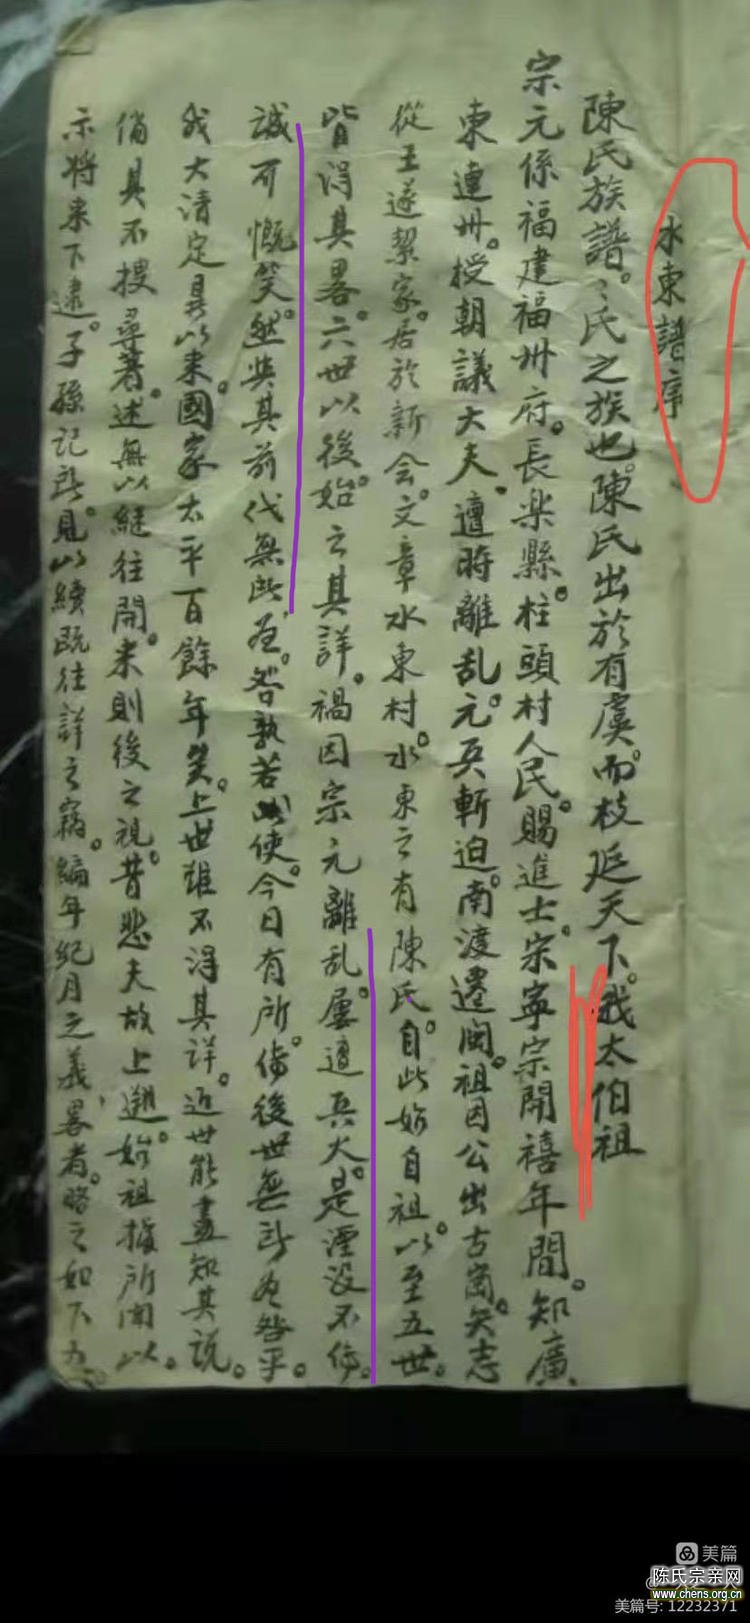 水東譜序
陳氏族譜。〻氏之族也。陳氏出於有虞。而枝延天下。我太伯祖
宗元係福建福州府。長樂縣。柱頭村人民。賜進士。宗寧宗開禧年間。知廣
東連州。授朝議大夫。遭時離乱。元兵斬迫。南渡遷闽。祖因公出古岡。矢志
從王遂絜家。居於新会。文章水東村。水東之有陳氏。自此始自祖。以至五世。
皆得其畧。六世以後。始之其詳。禍因宗元離乱。屢遭兵火。是湮没不傳。
誠可慨笑。然其前代無所。咎孰若此使。今日有所。傳後世無所咎乎。
我大清定具以来。國家太平百餘年矣。上世雖不得其詳。近世能盡知其說。
倘其不搜尋著。述無以継往開。来則後之視。昔悲夫故上遡。始祖據所闻以。
示将来下逮。子孫記所。見以續既往詳之竊。编年紀月之義畧者。略之如下
美篇
陳氏宗亲网
www.chens.org.cn
美篇号: 12232371